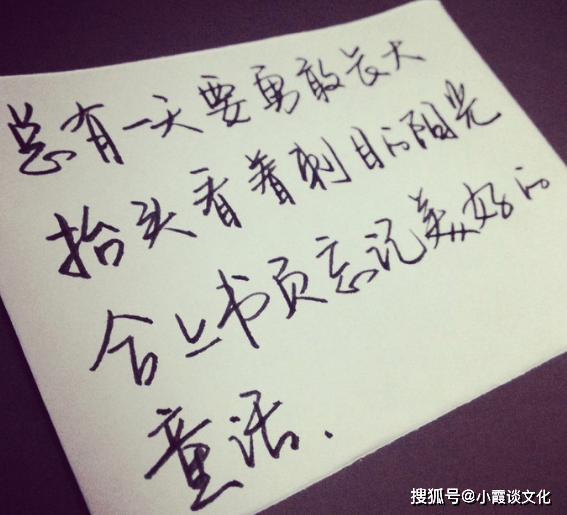 总有一天要勇敢长大
抬头看着刺目的阳光
合上书页忘记美好的
童话.
搜狐号@小霞谈文化